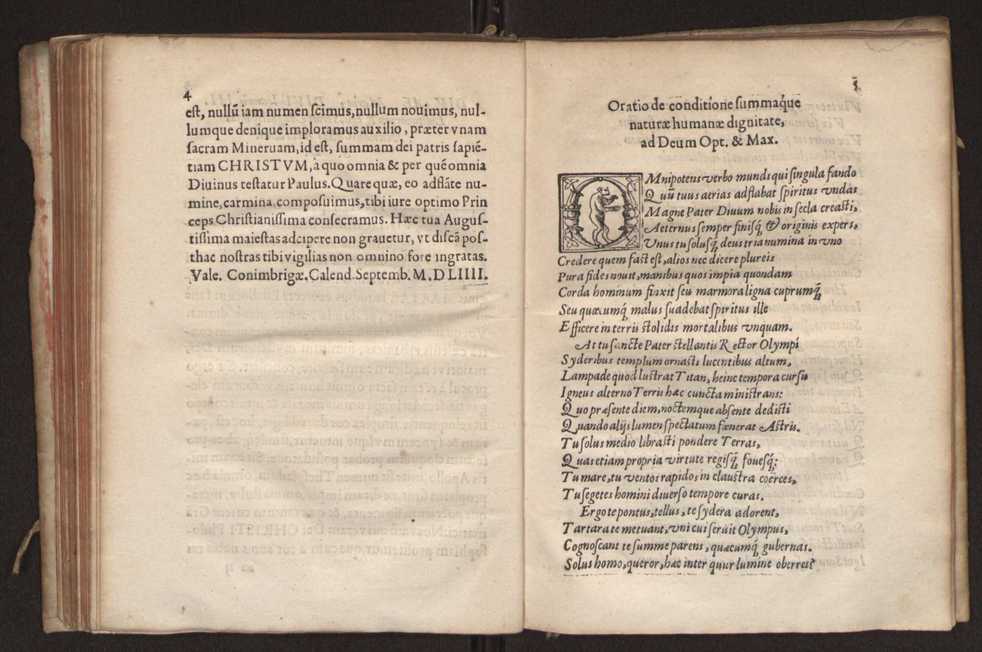 4
est, nullũ iam numen scimus, nullum nouimus, nul-
lumque denique imploramus auxilio, præter vnam
sacram Mineruam, id est, summam dei patris sapiẽ-
tiam CHRISTVM, à quo omnia & per quẽ omnia
Diuinus testatur Paulus. Quare quæ, eo adflãte nu-
mine, carmina composuimus, tibi iure optimo Prin
ceps Christianissima consecramus. Hæc tua Augus-
tissima maiestas adcipere non grauetur, vt discã pos-
thac nostras tibi vigilias non omnino fore ingratas.
Vale. Conimbrigæ. Calend. Septemb. M. D LIIII.
5
Oratio de conditione summaq́ue
naturæ humanæ dignitate,
ad Deum Opt. & Max.
OMnipotens verbo mundi qui singula fando
Quũ tuus aerias adflabat spiritus vndas
Magne Pater Diuum nobis in secla creasti,
Aeternus semper finisq́; & originis expers,
Vnus tu solusq́; deus tria numina in vno
Credere quem fact est, alios nec dicere plureis
Pura fides nouit, manibus quos impia quondam
Corda hominum finxit seu marmora ligna cuprumq́;
Seu quæcumq́; malus suadebat spiritus ille
Efficere in terris stolidis mortalibus vnquam.
At tu sancte Pater stellantis Rector Olympi
Syderibus templum ornasti lucentibus altum,
Lampade quod lustrat Titan, heinc tempora cursu
Igneus alterno Terris hæc cuncta ministrans:
Quo præsente diem, noctemque absente dedisti
Quando alijs lumen spectatum fœnerat Astris.
Tu solus medio librasti pondere Terras,
Quas etiam propria virtute regisq́; fouesq́;:
Tu mare, tu ventos rapidos, in claustra coërces,
Tu segetes homini diuerso tempore curas.
Ergo te pontus, tellus, te sydera adorent,
Tartara te metuant, vni cui seruit Olympus,
Cognoscant te summe parens, quæcumq́; gubernas.
Solus homo, queror, hæc inter quur lumine oberret?